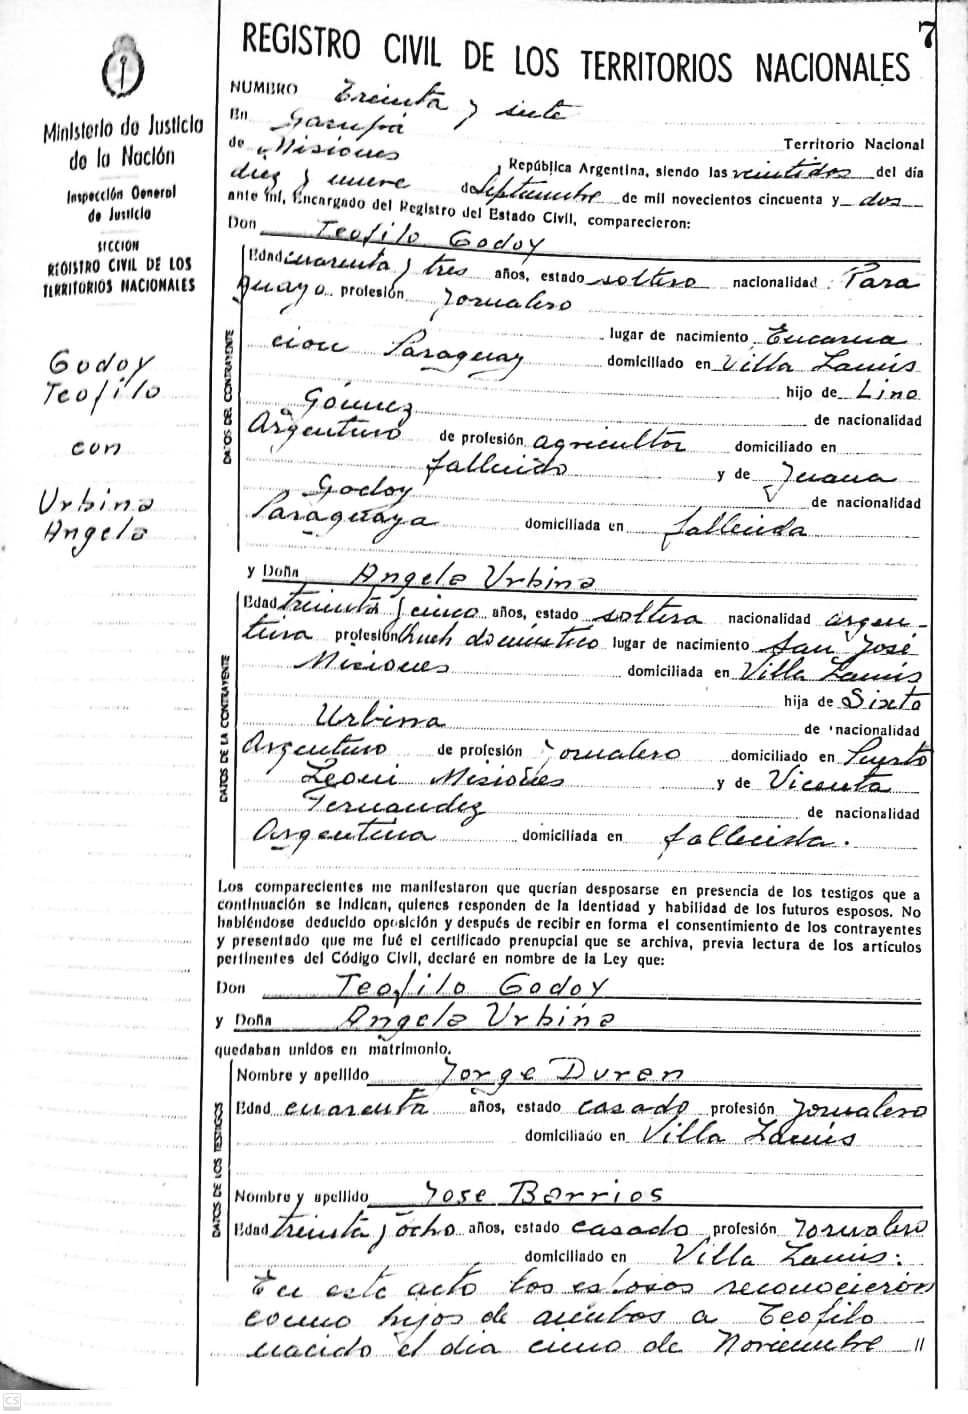 7
REGISTRO CIVIL DE LOS TERRITORIOS NACIONALES
Ministerio de Justicia
de la Nación
Inspección General
de Justicia
SECCION
REGISTRO CIVIL DE LOS
TERRITORIOS NACIONALES
Godoy
Teofilo
con
Urbina
Angela
NUMERO Treinta y siete
En Garupá Territorio Nacional
de Misiones, República Argentina, siendo las veintidos del día
diez y nueve de Septiembre de mil novecientos cincuenta y dos
ante mí, Encargado del Registro del Estado Civil, comparecieron:
Don Teofilo Godoy
DATOS DEL CONTRAYENTE
Edad cuarenta y tres años, estado soltero nacionalidad Para
guayo profesión Jornalero
lugar de nacimiento Encarna
cion Paraguay domiciliado en Villa Lanús
hijo de Lino
Gómez de nacionalidad
Argentino de profesión agricultor domiciliado en
fallecido y de Juana
Godoy de nacionalidad
Paraguaya domiciliada en fallecida
y Doña Angela Urbina
DATOS DE LA CONTRAYENTE
Edad treinta y cinco años, estado soltera nacionalidad argen-
tina profesión Queh domestico lugar de nacimiento San José
Misiones domiciliada en Villa Lanús
hija de Sixto
Urbina de nacionalidad
Argentino de profesión Jornalero domiciliado en Puerto
Leoni Misiones y de Vicenta
Fernandez de nacionalidad
Argentina domiciliada en fallecida.
Los comparecientes me manifestaron que querían desposarse en presencia de los testigos que a
continuación se indican, quienes responden de la identidad y habilidad de los futuros esposos. No
habiéndose deducido oposición y después de recibir en forma el consentimiento de los contrayentes
y presentado que me fué el certificado prenupcial que se archiva, previa lectura de los artículos
pertinentes del Código Civil, declaré en nombre de la Ley que:
Don Teofilo Godoy
y Doña Angela Urbina
quedaban unidos en matrimonio.
DATOS DE LOS TESTIGOS
Nombre y apellido Jorge Duren
Edad cuarenta años, estado casado profesión Jornalero
domiciliado en Villa Lanús
Nombre y apellido Jose Barrios
Edad treinta y ocho años, estado casado profesión Jornalero
domiciliado en Villa Lanús.
En este acto los esposos reconocieron
como hijos de ambos a Teofilo
nacido el día cinco de Noviembre //
CS